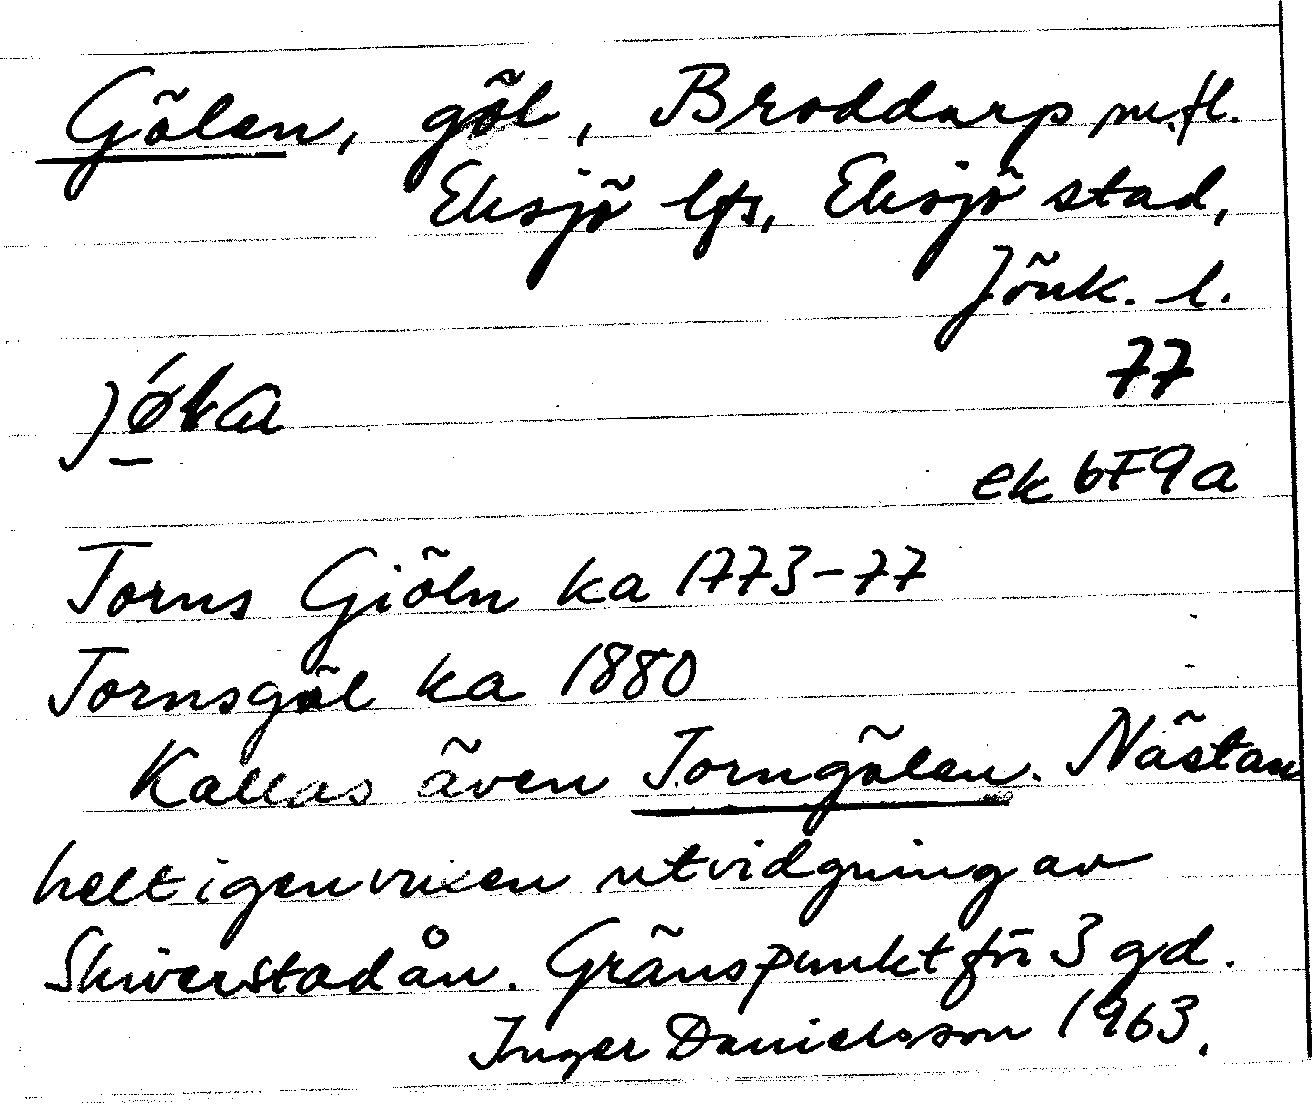 Gölen, göl, Broddarp m.fl.
Eksjö lfs, Eksjö stad,
Jönk. l.
77
jǿ̱ka
ek 6F9a
Torns Giöln ka 1773-77
Tornsgöl ka 1880
Kallas även Torngölen. Nästan
helt igenvuxen utvidgning av
Skiverstadån. Gränspunkt för 3 gd.
Inger Danielsson 1963.